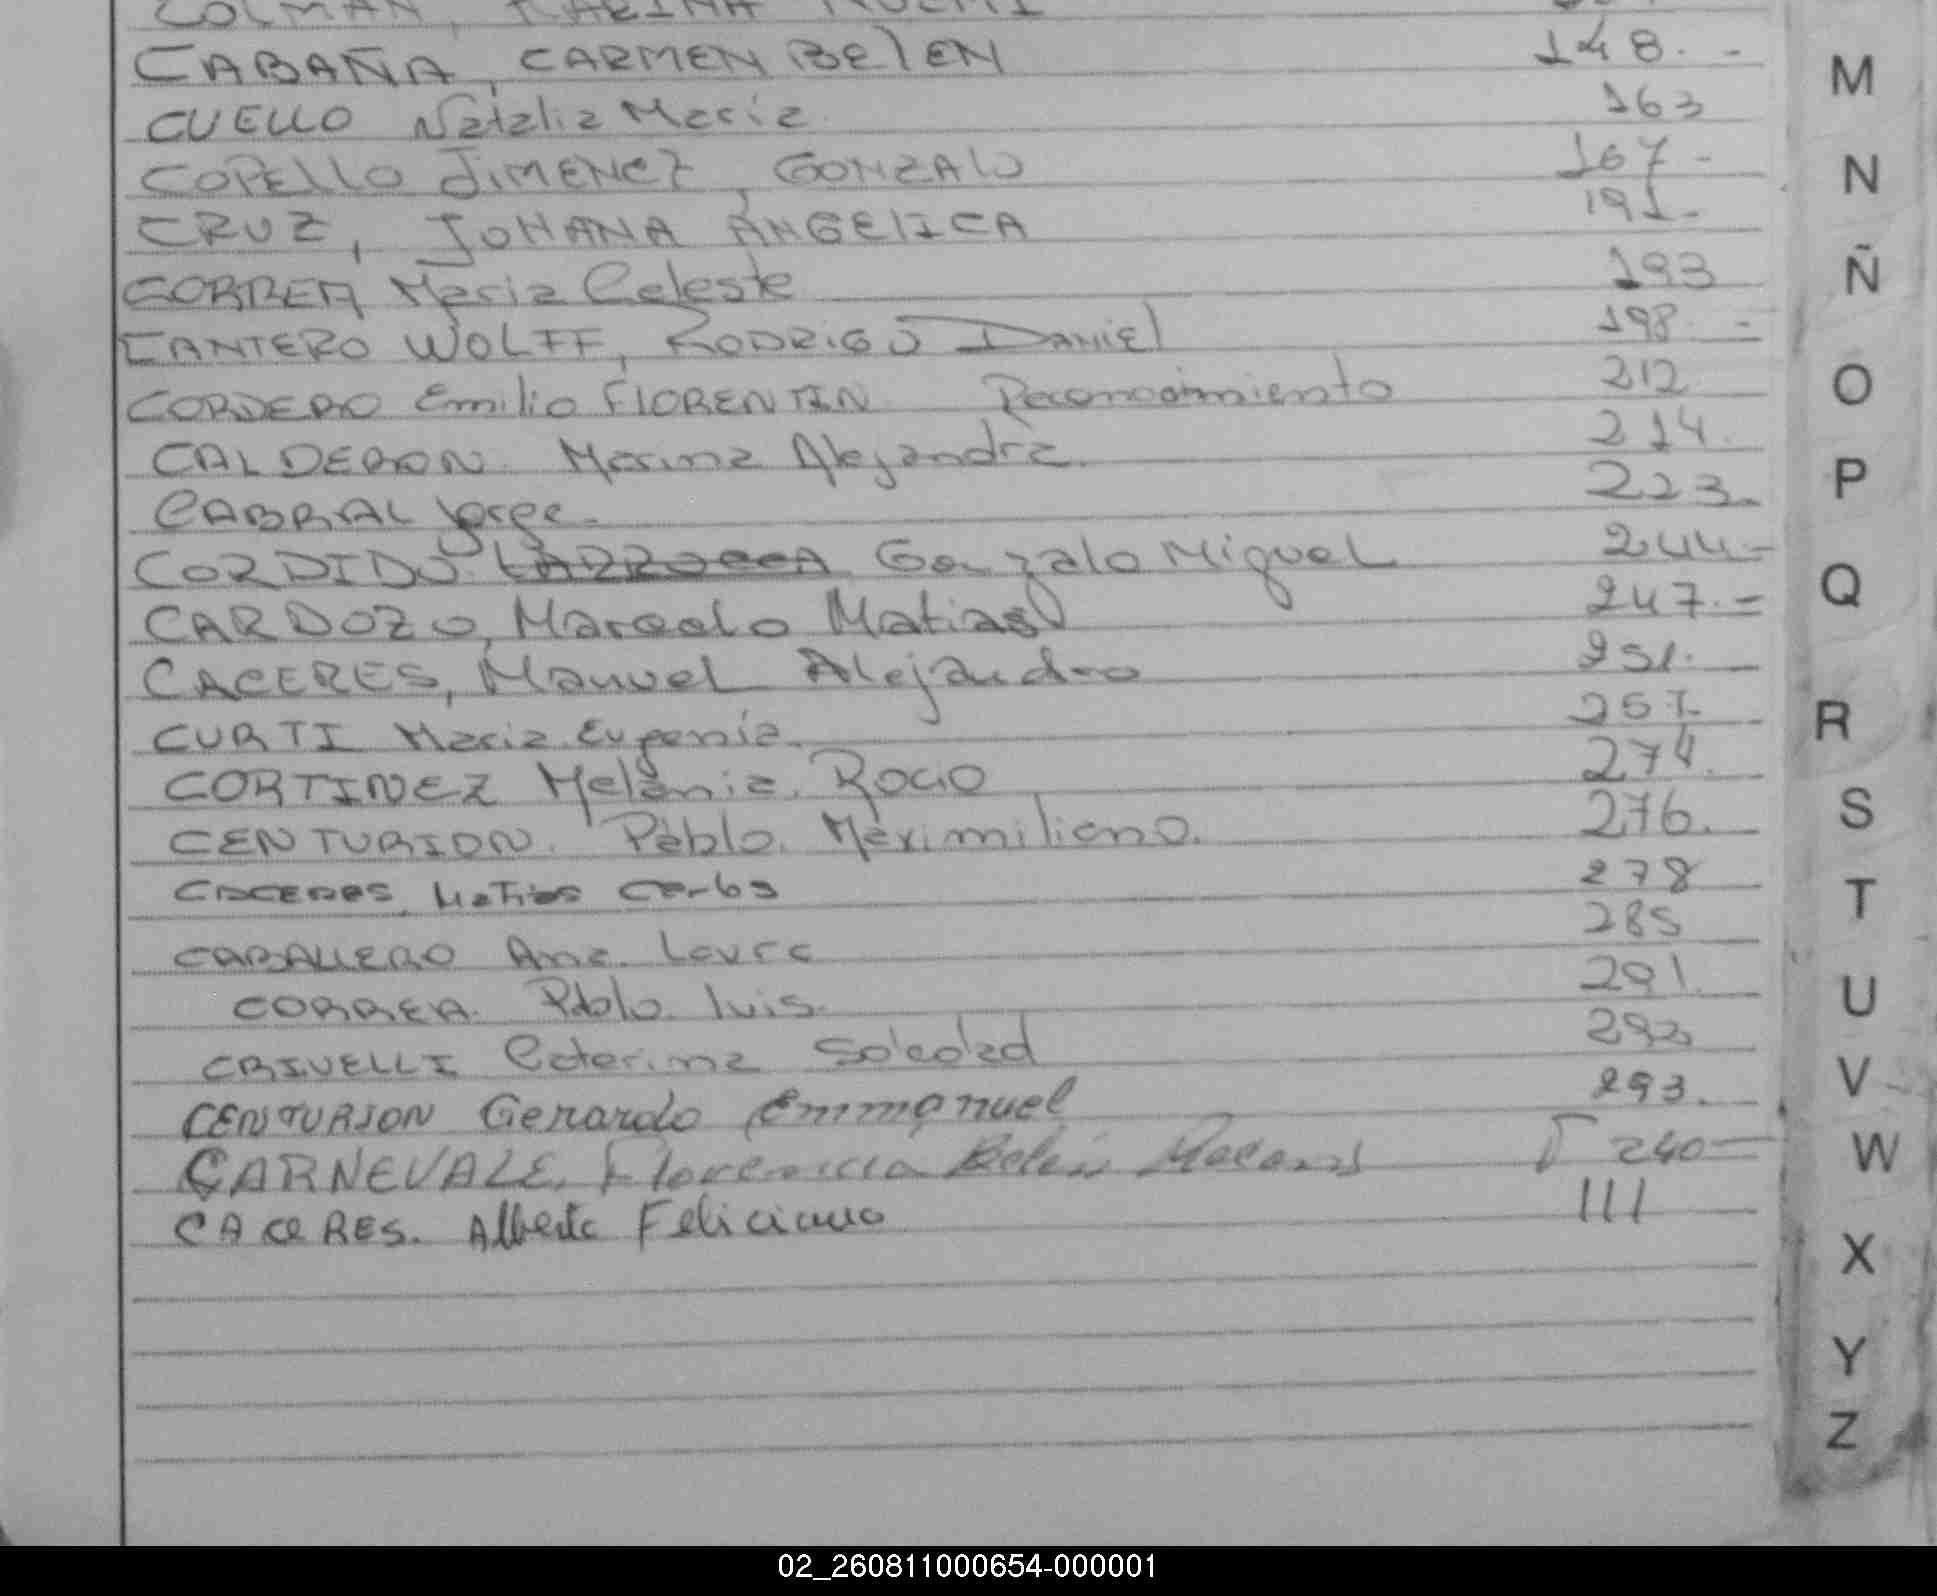 COLMAN, KARINA NOEMI
CABAÑA, CARMEN BElEN 148.-
CUELLO Natalia Maria. 163
COPELLO JIMENEZ, GONZALO 167-
CRUZ, JOHANA ANGELICA 191-
CORREA Maria Celeste 193
CANTERO WOLFF, RODRIGO DANIEl 198.=
CORDERO Emilio FlORENTIN Reconocimiento 212
CALDERON Marina Alejandra. 214.
CABRAL Jorge. 223.
CORDIDO LARROCCA Gonzalo Miguel 244-
CARDOZO, Marcelo Matias 247.=
CACERES, Manuel Alejandro 251.-
CURTI Maria Eugenia. 257-
CORTINEZ Melania. ROCIO 274.
CENTURION. Pablo. Maximiliano. 276.
CACERES, Matias Carlos 278
CABALLERO Ana Laura 285
CORREA. Pablo luis. 291.
CRIVELLI Caterina Soledad 292
CENTURION Gerardo Emmanuel 293.
CARNEVALE, Florencia Belén 240-
CACERES. Alberto Feliciano 111
M
N
Ñ
O
P
Q
R
S
T
U
V
W
X
Y
Z
02_260811000654-000001